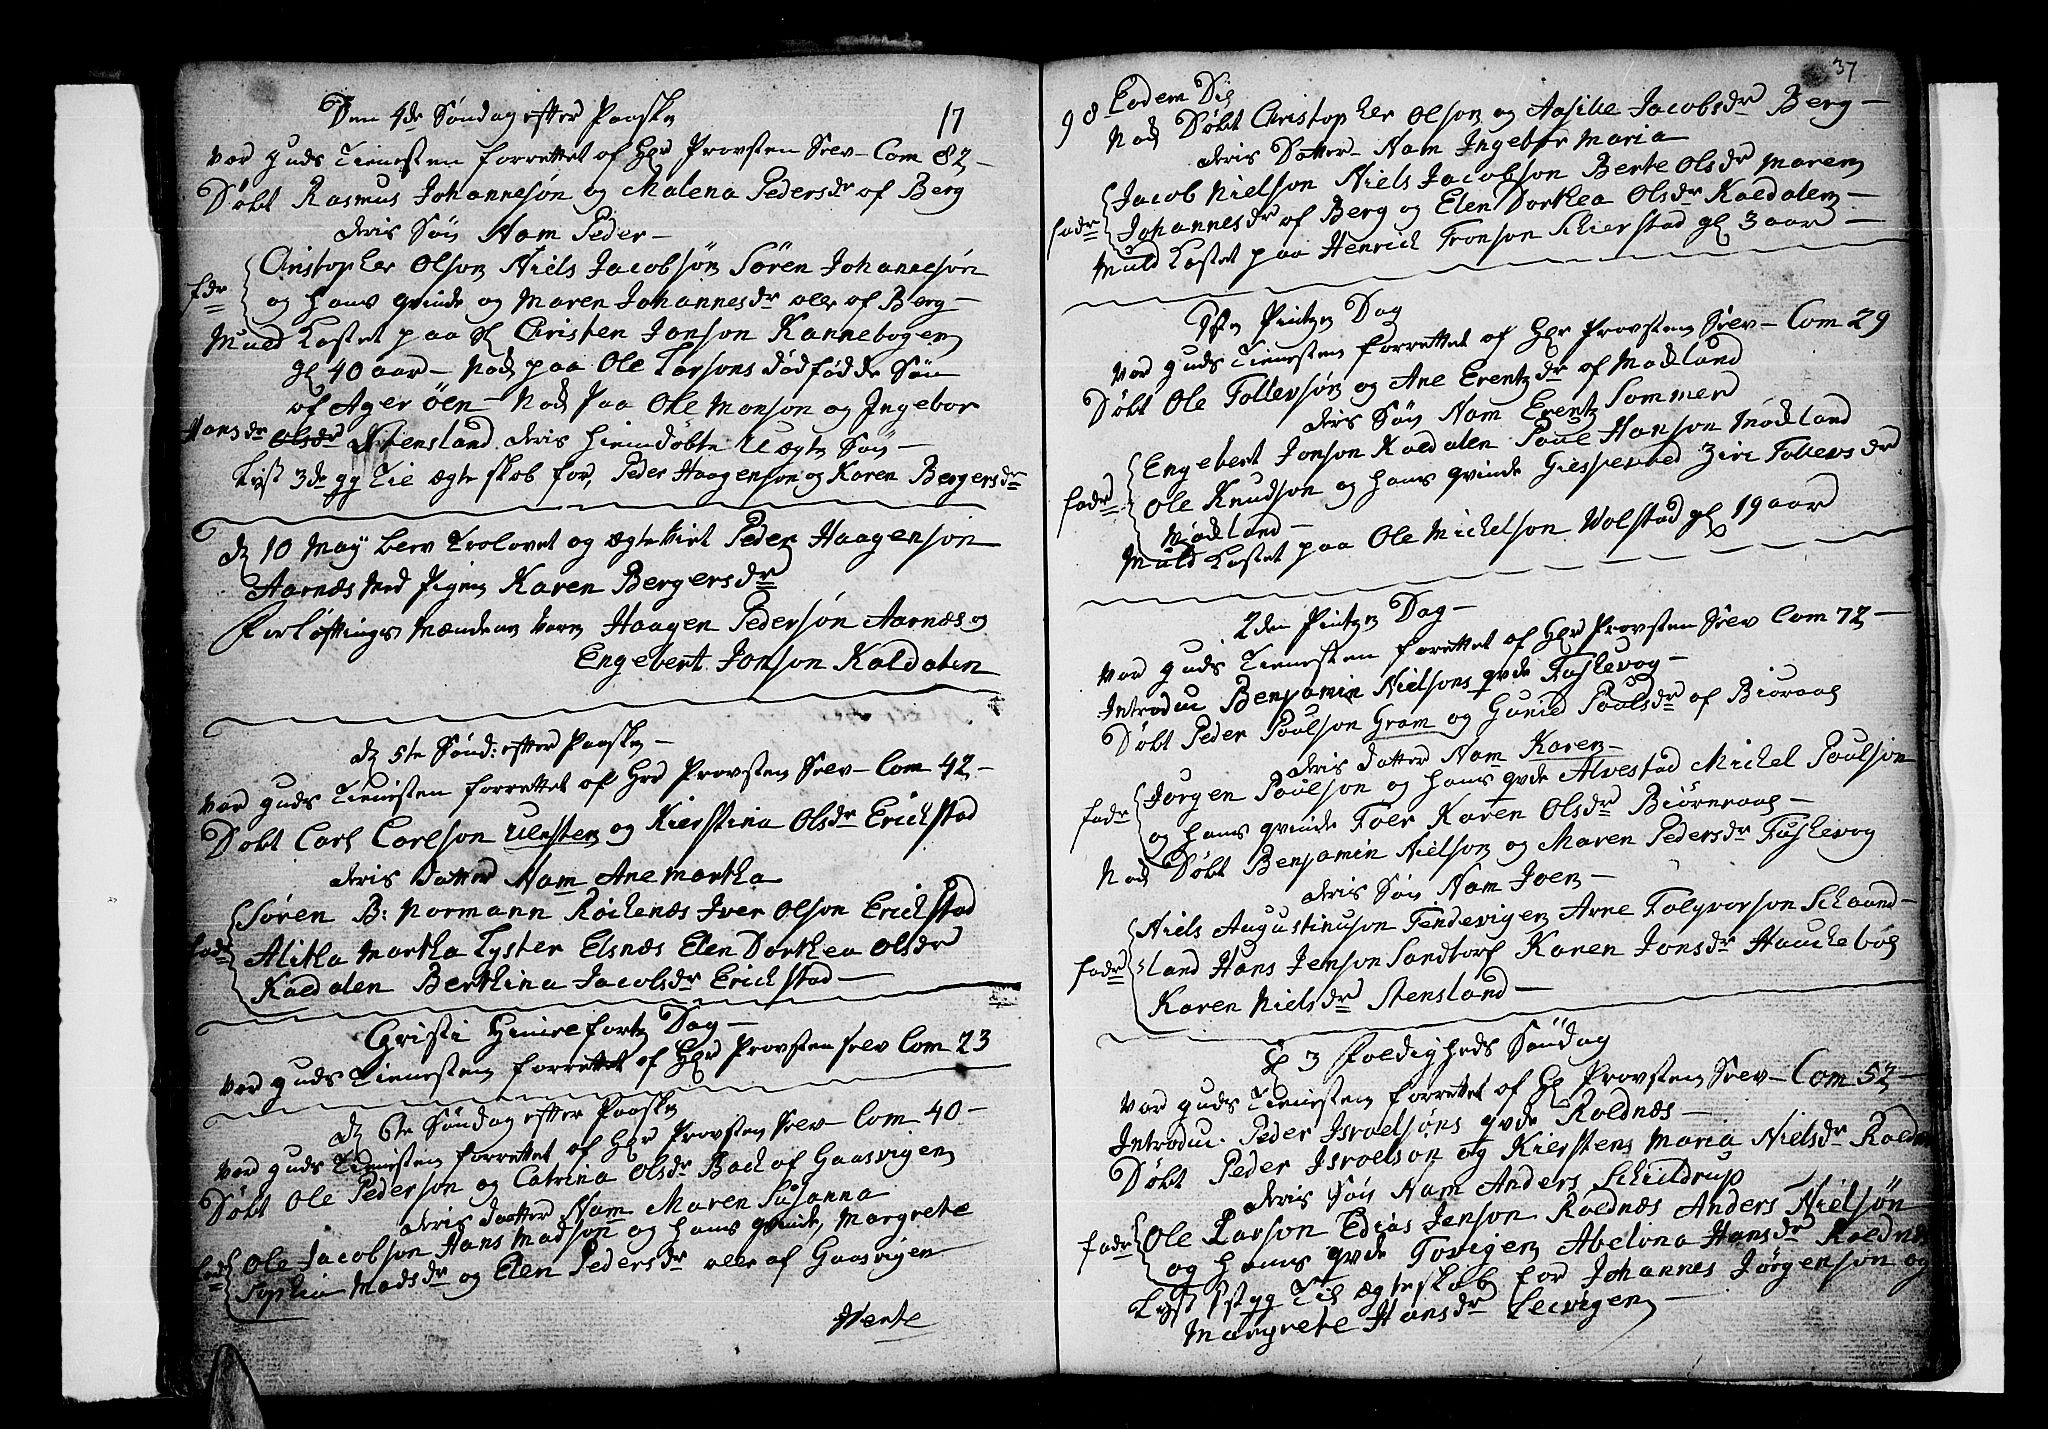 Den 4de Söndag efter Paaske
17
var guds Tienesten forrettet af Hr Provsten Selv - Com 82 -
Døbt Rasmus Johannesøn og Malena Pedersdr af Berg
deris Søn Nam Peder -
Christopher Olson Niels Jacobsøn Søren Johannesøn
fadr og hans qvinde og Maren Johannesdr alle af Berg -
Muld Kastet paa Christen Jonson Kannebogen
gl 40 aar - Nok paa Ole Larsons dødfødde Søn
af Ager öen - Nok paa Ole Monson og Ingebor
Hansdr Stensland deris hiemdøbte Uægte Søn -
Lyst 3de gg Til ægteskab for, Peder Haagenson og Karen Bergersdr
d 10 May blev Trolovet og ægteviet Peder Haagenson
Aarnæs Med Pigen Karen Bergersdr
Forløftings Mændene Vare Haagen Pedersøn Aarnæs og
Engebert Jonson Kaldalen
d 5te Sönd: efter Paaske -
var guds Tienesten forrettet af Hr Provsten Selv - Com 42 -
Døbt Carl Carlson Ulesten og Kierstina Olsdr Erickstad
deris datter Nam Ane Martha
Søren B: Normann Røckenæs Iver Olson Erickstad
fadr Alitha Martha Lyster Elsnæs Elen Dorthea Olsdr
Kaldalen Berthina Jacobsdr Erickstad -
Christi Himelfarts Dag -
var guds Tienesten forrettet af Hr Provsten selv Com 23
d 6te Söndag efter Paaske
var guds Tienisten forrettet af Hr Provsten Selv - Com 40 -
Døbt Ole Pederson og Catrina Olsdr Back af Gaasvigen
deris datter Nam Maren Susanna
fadr Ole Jacobson Hans Madson og hans qvinde, Margrete
Sophia Madsdr og Elen Pedersdr alle af Gaasvigen
Verte
37
98 Eodem Die
Nok Døbt Christopher Olson og Aasille Jacobsdr Berg -
deris Datter - Nam Ingebor Maria
Jacob Nielson Niels Jacobsøn Berte Olsdr Maren
fadr Johannesdr af Berg og Elen Dorthea Olsdr Kaldalen -
Muld Kastet paa Henrick Tronson Schierstad gl 3 aar -
Pintze Dag
var guds Tienesten forrettet af Hr Provsten Selv - Com 29
Døbt Ole Tollevsøn og Ane Erentzdr af Modland
deris Søn Nam Erentz Sommer
Engebert Jonson Kaldalen Poul Hanson Modland
fadr Ole Knudson og hans qvinde Giesperud Ziri Tollevsdr
Modland -
Muld Kastet paa Ole Mickelson Wolstad gl 19 aar
2den Pintze Dag -
var guds Tienesten forrettet af Hr Provsten Selv Com 72 -
Introduc Benjamin Nielsons qvde Fuskevog -
Døbt Peder Poulson Gram og Gunild Poulsdr af Biöraas
deris datter Nam Karen -
Jorgen Poulson og hans qvde Alvestad Mickel Poulsion
fadr og hans qvinde Foer Karen Olsdr Biörneraas -
Nok Døbt Benjamin Nielson og Maren Pedersdr Fuskevog
deris Søn Nam Joen -
Niels Augustinuson Tendevigen Arne Tolgvorson Schaand -
fadr land Hans Jenson Sandtorf Karen Jonsdr Hauckebøe
Karen Nielsdr Stensland -
3 foldigheds Söndag
var guds Tienesten forrettet af Hr Provsten Selv - Com 52 -
Introduc. Peder Israelsøns qvde Roldnæs -
Døbt Peder Israelson og Kiersten Maria Nielsdr Roldn
deris Søn Nam Anders Schieldrup
Ole Larson Edias Jenson Roldnæs Anders Nielsøn
fadr og hans qvde Tovigen Abelona Hansdr Roldnæs
Lyst 1st gg Til ægteskab for Johannes Jørgenson og
Margrete Hansdr Leevigen -